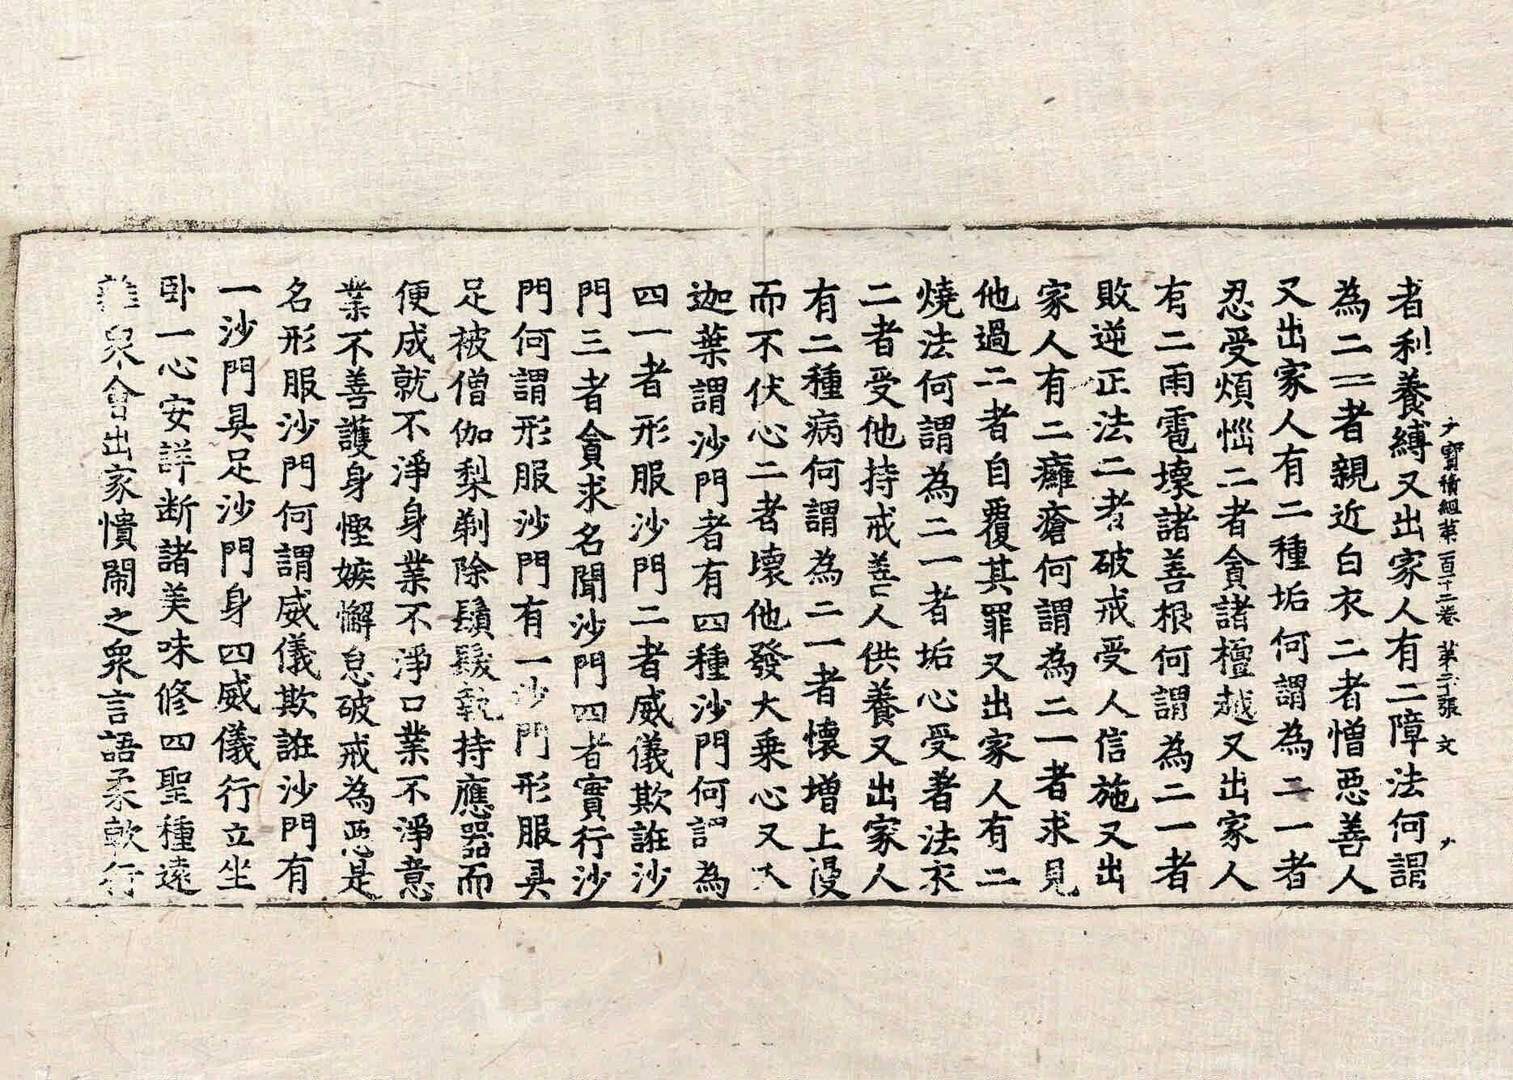 大寳積經第一百十二卷 第二十張 文
者利養縛又出家人有二障法何謂
為二一者親近白衣二者憎惡善人
又出家人有二種垢何謂為二一者
忍受煩惱二者貪諸檀越又出家人
有二雨雹壊諸善根何謂為二一者
敗逆正法二者破戒受人信施又出
家人有二癰瘡何謂為二一者求見
他過二者自覆其罪又出家人有二
燒法何謂為二一者垢心受著法衣
二者受他持戒善人供養又出家人
有二種病何謂為二一者懷增上慢
而不伏心二者壊他發大乗心又大
迦葉謂沙門者有四種沙門何謂為
四一者形服沙門二者威儀欺誑沙
門三者貪求名聞沙門四者實行沙
門何謂形服沙門有一沙門形服具
足被僧伽梨剃除鬚髮執持應器而
便成就不淨身業不淨口業不淨意
業不善護身慳嫉懈怠破戒為惡是
名形服沙門何謂威儀欺誑沙門有
一沙門具足沙門身四威儀行立坐
卧一心安詳断諸美味修四聖種遠
離衆會出家憒閙之衆言語柔軟行